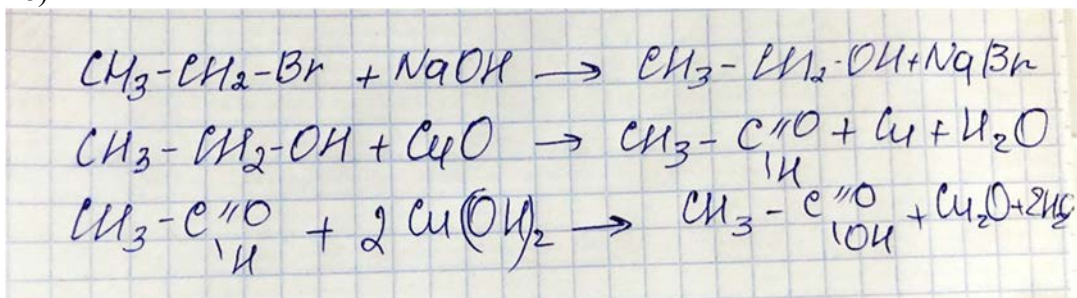 CH3-CH2-Br + NaOH → CH3-CH2-OH+NaBr
CH3-CH2-OH + CuO → CH3-C=O + Cu + H2O
\H
CH3-C=O + 2 Cu(OH)2 → CH3-C=O + Cu2O+2H2O
\H \OH